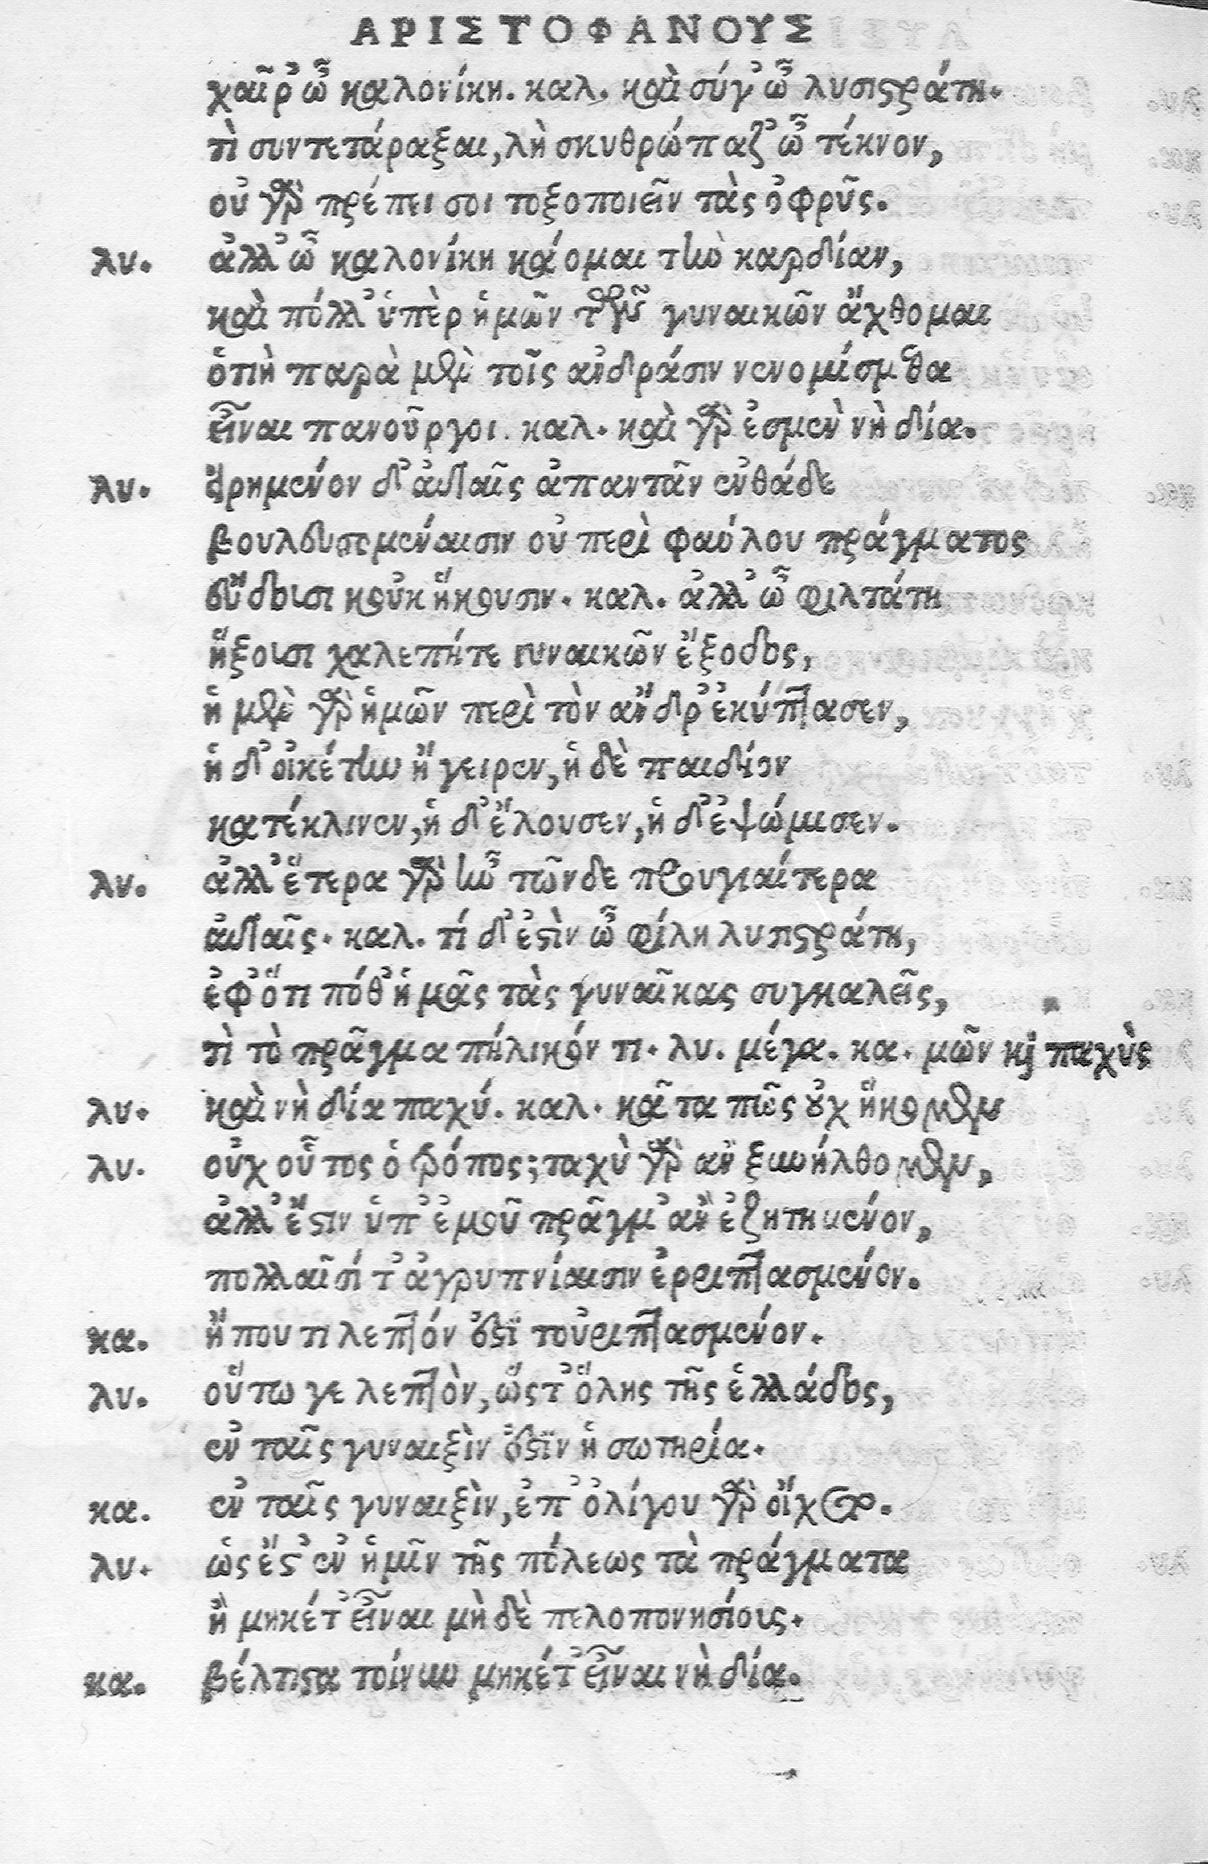 ΑΡΙΣΤΟΦΑΝΟΥΣ
χαῖρ' ὦ καλονίκη. καλ. καὶ σύγ' ὦ λυσιστράτη.
τὶ συντετάραξαι, λὴ σκυθρώπαζ' ὦ τέκνον,
οὐ γὰρ πρέπει σοι τοξοποιεῖν τὰς ὀφρῦς.
λυ. ἀλλ' ὦ καλονίκη κάομαι τὴν καρδίαν,
καὶ πόλλ' ὑπὲρ ἡμῶν τῶν γυναικῶν ἄχθομαι
ὁτιὴ παρὰ μὲν τοῖς ἀνδράσιν νενομίσμεθα
εἶναι πανοῦργοι. καλ. καὶ γὰρ ἐσμὲν νὴ δία.
λυ. εἰρημένον δ' αὐταῖς ἀπαντᾶν ἐνθάδε
βουλευσομέναισιν οὐ περὶ φαύλου πράγματος
εὕδουσι κοὐκ ἥκουσιν. καλ. ἀλλ' ὦ φιλτάτη
ἥξουσι χαλεπήτε γυναικῶν ἔξοδος,
ἡ μὲν γὰρ ἡμῶν περὶ τὸν ἄνδρ' ἐκύπτασεν,
ἡ δ' οἰκέτην ἤγειρεν, ἡ δὲ παιδίον
κατέκλινεν, ἡ δ' ἔλουσεν, ἡ δ' ἐψώμισεν.
λυ. ἀλλ' ἕτερα γὰρ ἦν τῶνδε προυγιαίτερα
αὐταῖς. καλ. τί δ' ἐστὶν ὦ φίλη λυσιστράτη,
ἐφ' ὅτι πόθ' ἡμᾶς τὰς γυναῖκας συγκαλεῖς,
τὶ τὸ πρᾶγμα πήλικόν τι. λυ. μέγα. κα. μῶν καὶ παχὺς
λυ. καὶ νὴ δία παχύ. καλ. κᾆτα πῶς οὐχ ἥκομεν
λυ. οὐχ οὗτος ὁ τρόπος; ταχὺ γὰρ ἂν ξυνήλθομεν,
ἀλλ' ἔστιν ὑπ' ἐμοῦ πρᾶγμ' ἀνεζητημένον,
πολλαῖσί τ' ἀγρυπνίαισιν ἐρριπτασμένον.
κα. ἤπου τι λεπτόν ἐστι τοὐριπτασμένον.
λυ. οὕτω γε λεπτὸν, ὥστ' ὅλης τῆς ἑλλάδος,
ἐν ταῖς γυναιξὶν ἐστὶν ἡ σωτηρία.
κα. ἐν ταῖς γυναιξὶν, ἐπ' ὀλίγου γὰρ οἴχεται.
λυ. ὡς ἔστ' ἐν ἡμῖν τῆς πόλεως τὰ πράγματα
ἢ μηκέτ' εἶναι μὴ δὲ πελοπονησίους.
κα. βέλτιστα τοίνυν μηκέτ' εἶναι νὴ δία.